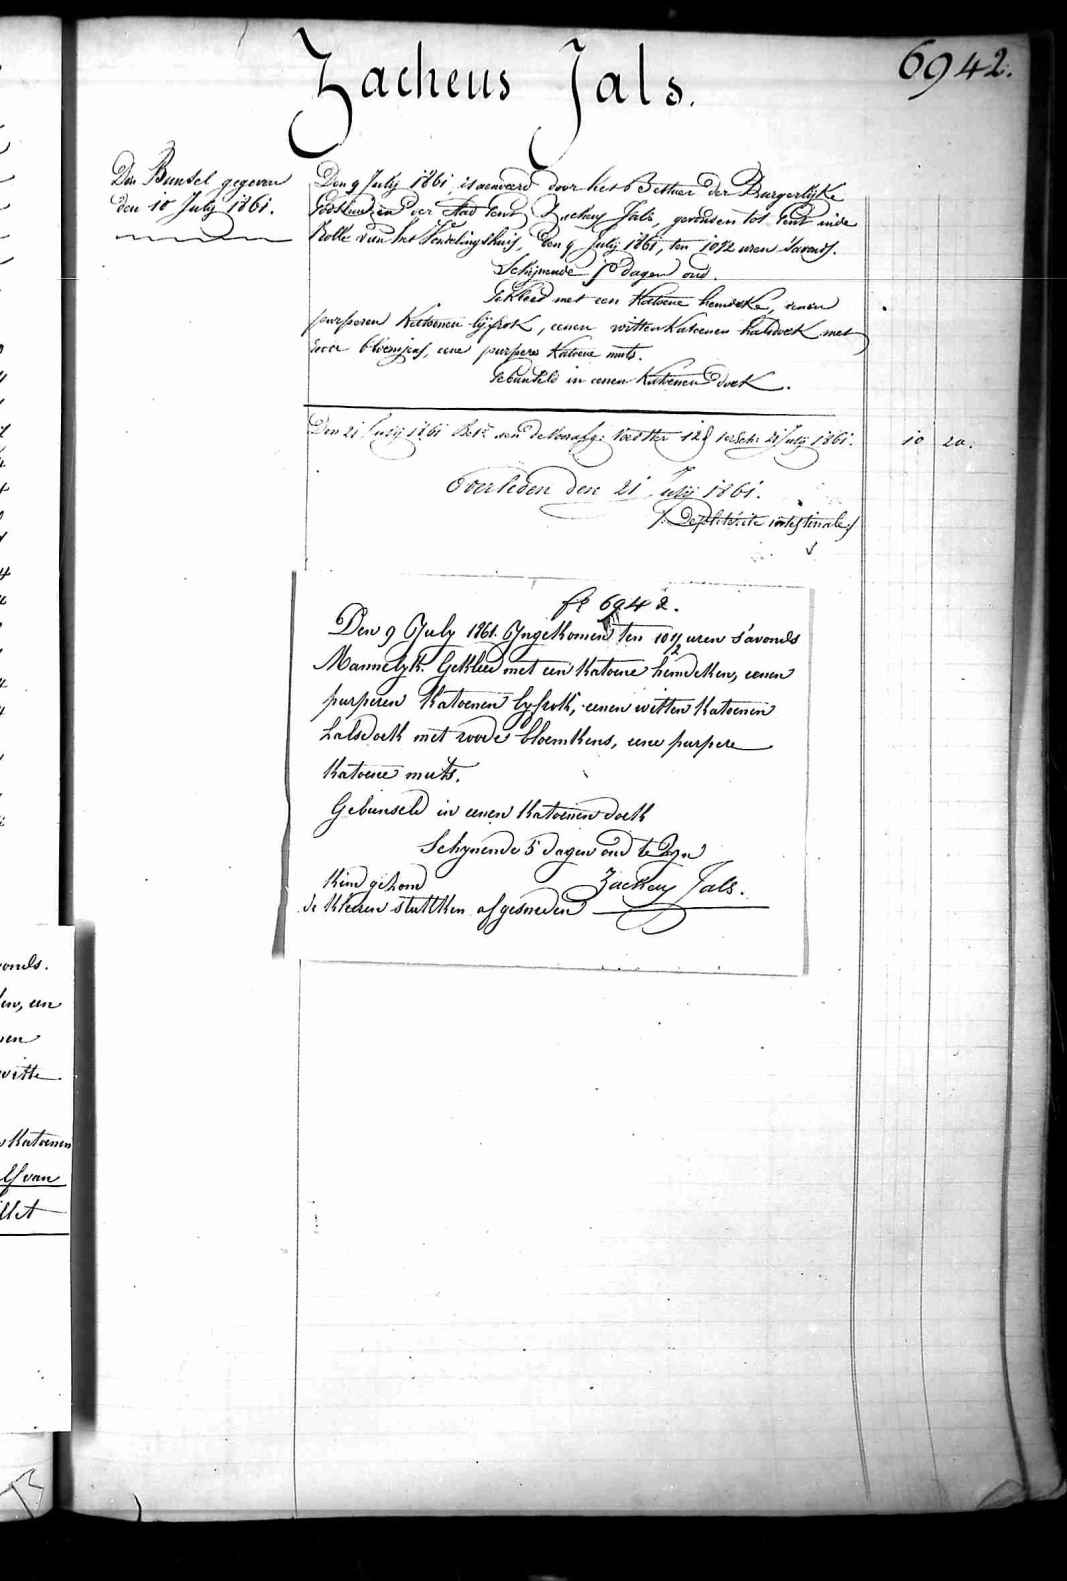 6942.
Zacheus Jals.
Den Bunsel gegeven
den 10 July 1861.
Den 9 July 1861 is aenveerd door het Bestier der Burgerlyke
Godshuizen der Stad Gent Zacheus Jals, gevonden tot Gent in de
Rolle van het Vondelingshuis, den 9 July 1861, ten 10 1/2 uren s'avonds.
Schynende 5 dagen oud.
Gekleed met een Katoene hemdeke, eenen
purperen Katoenen lyfrok, eenen witten Katoenen halsdoek met
roode bloemjens, eene purpere Katoene muts.
Gebunseld in eenen Katoenen doek.
Den 21 July 1861 aen de voedster 12 July 1861. 10 20.
Overleden den 21 July 1861.
intestinale
fo 6942.
Den 9 July 1861. Ingekomen ten 10 1/2 uren s'avonds
Mannelyk. Gekleed met een Katoene hemdeken, eenen
purperen Katoenen lyfrok, eenen witten Katoenen
halsdoek met roode bloemkens, eene purpere
Katoene muts.
Gebunseld in eenen Katoenen doek
Schynende 5 dagen oud te zyn
Kind gezond Zacheus Jals.
de kleeren stukken afgesneden
onds.
en, een
en
witte
Katoenen
van